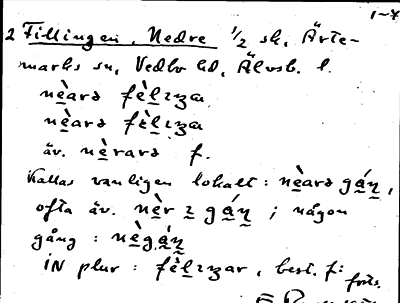 1-4
2 Fillingen, Nedre 1/2 sk, Ärte-
marks sn, Vedbo hd, Älvsb. l.
nèarə fè̀lıŋa
nèarə fè̀lıŋa
äv. nèrarə f.
Kallas vanligen lokalt: nèarə gáṇ,
ofta äv. nèr ı gáṇ; någon
gång: nègáṇ
IN plur: fèlıŋar, best. f:
forts.